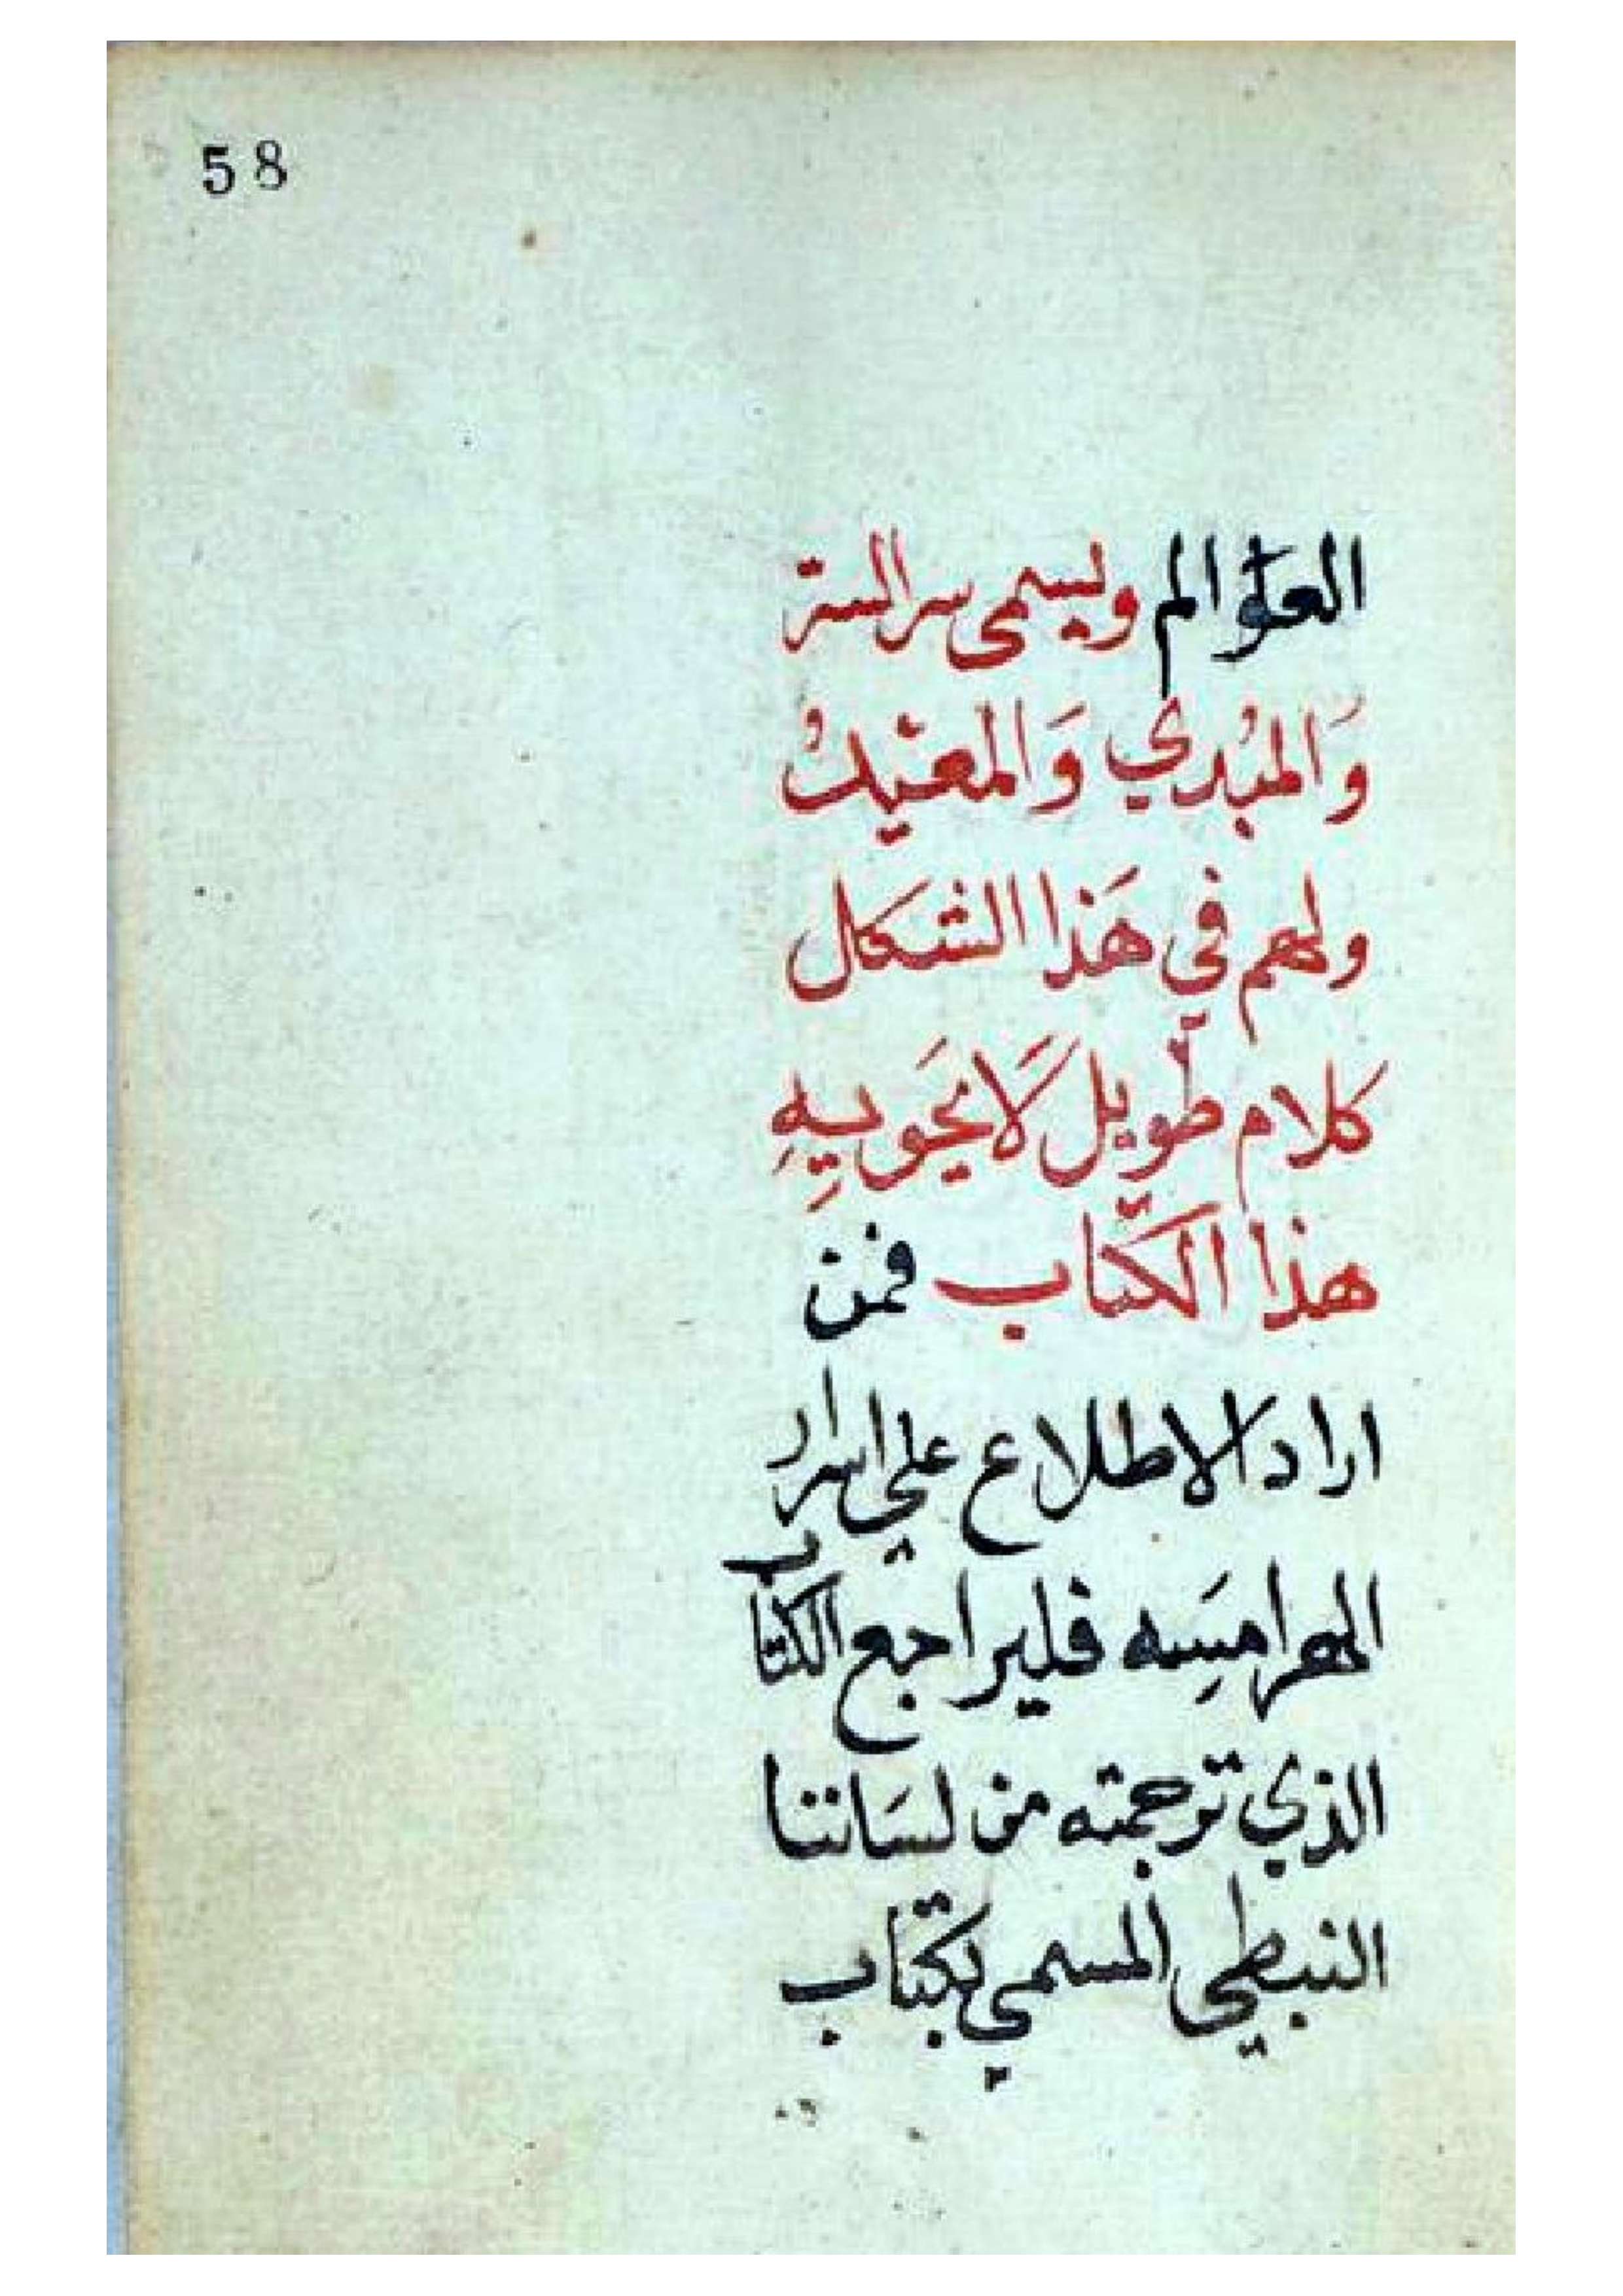 58
العلوالم ويسمى سر الستر
وَالمبُدي وَالمعيْدُ
ولهم في هَذا الشكَل
كلام طويل لَا يحَويهِ
هذا الكتَاب فمن
اراد الاطلاع علي اسرار
الهرامسِه فليراجع الكتاب
الذي ترجمته من لسَاننا
النبطي المسمي بكتَاب